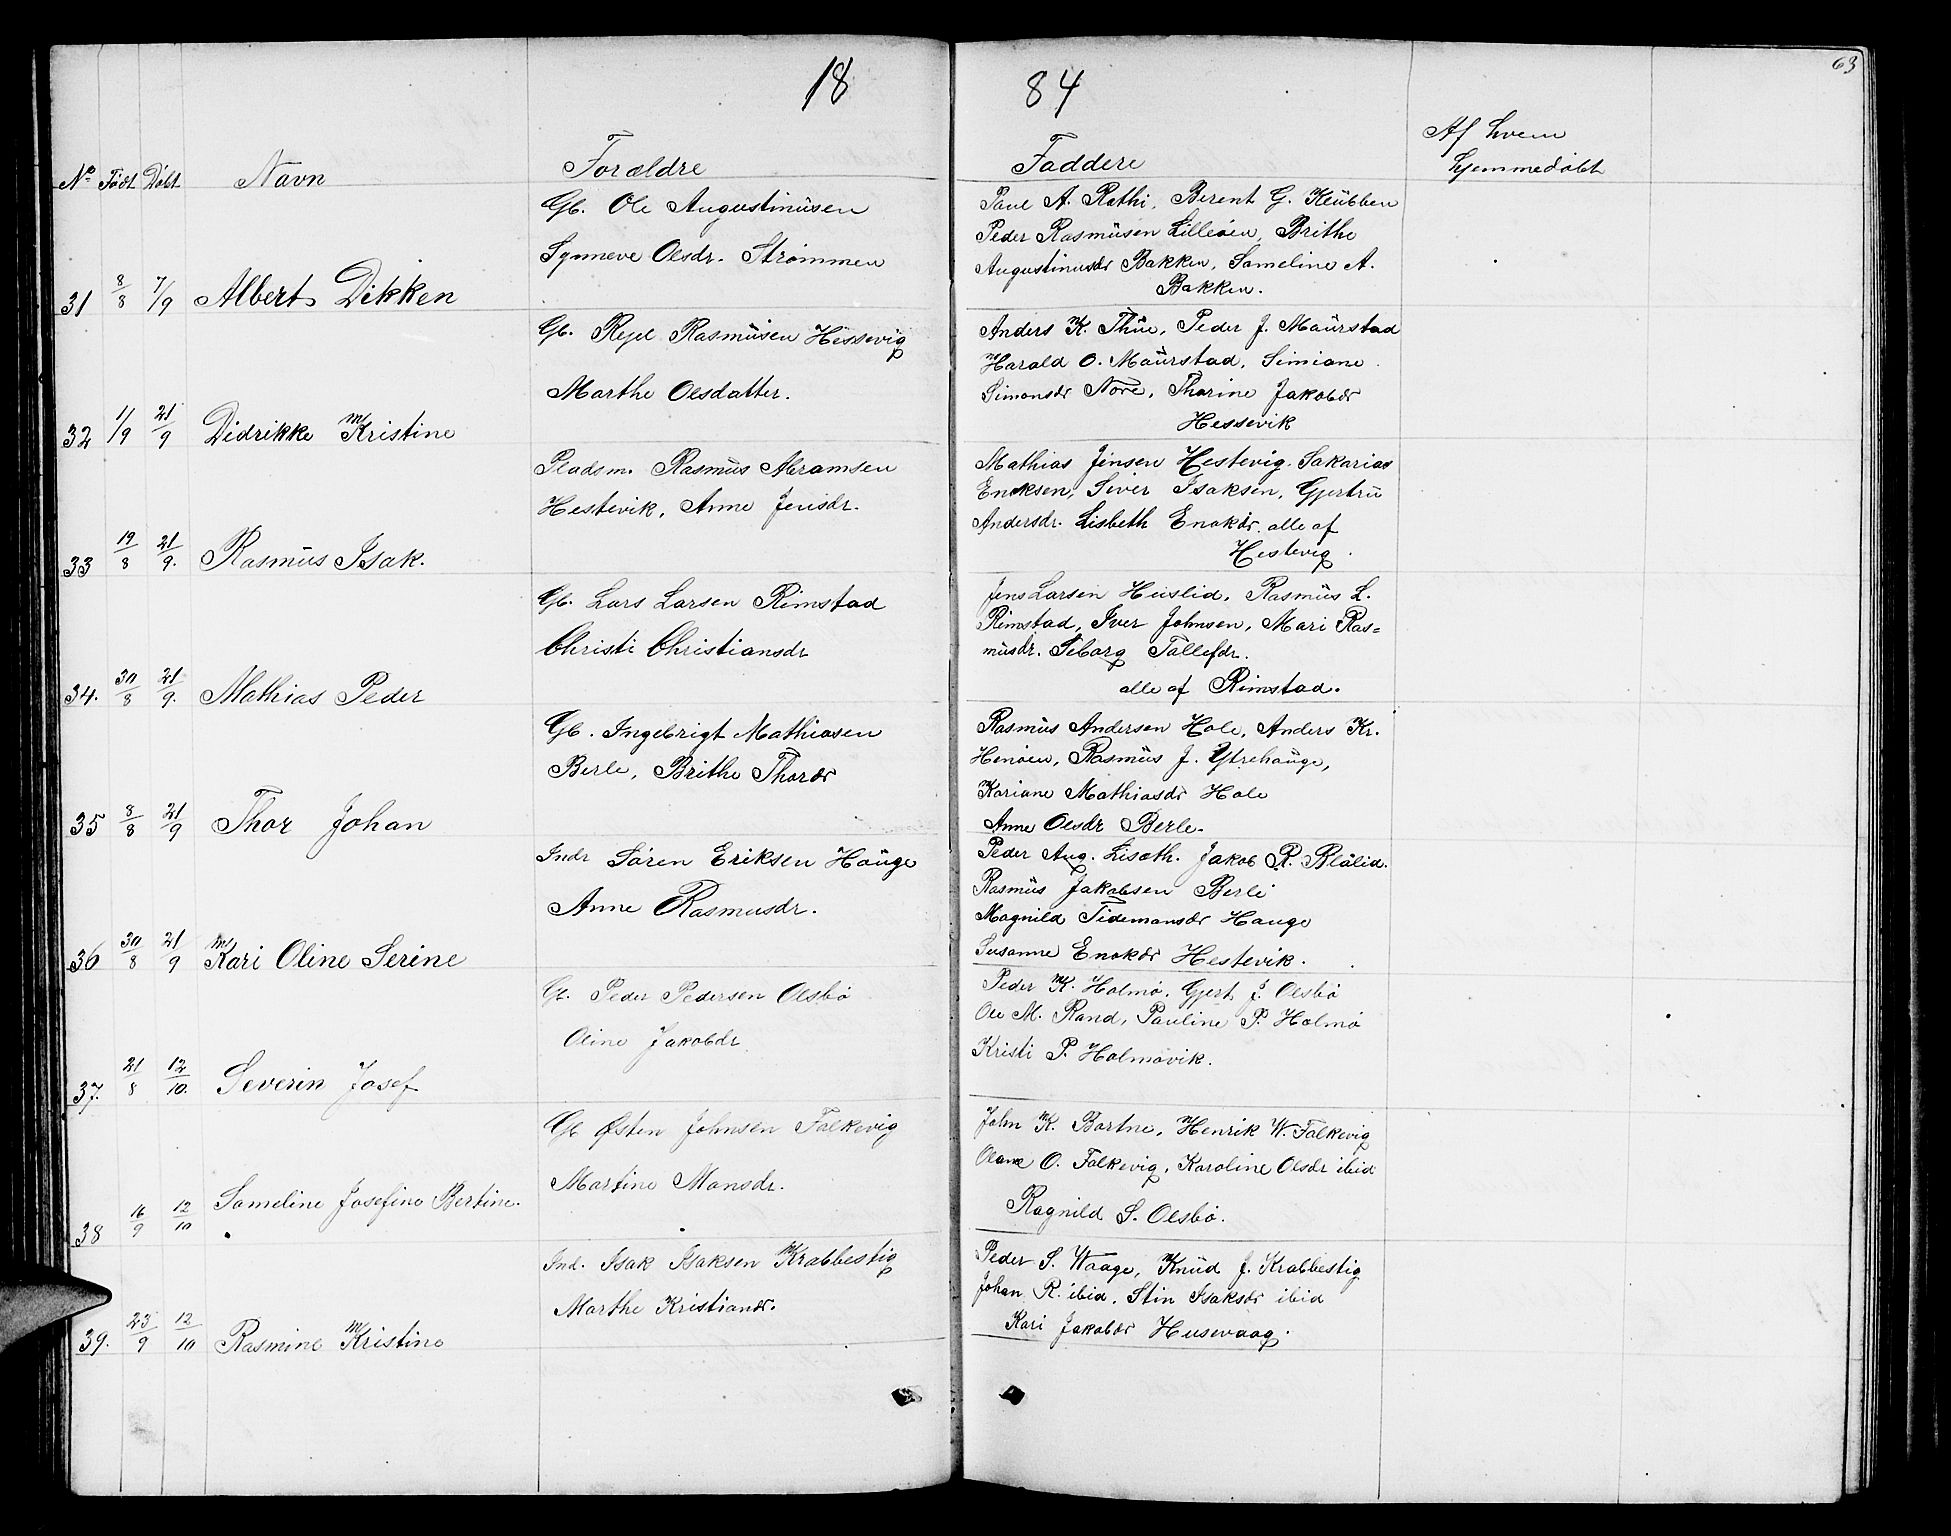 18 84
63
No. Født Døbt Navn Forældre Faddere Af hvem
hjemmedøbt
Gb. Ole Augustinüsen
Synneve Olsdr. Strømmen
31 8/8 7/9 Albert Dikken
Paul A. Rathi, Berent G. Klübben
Peder Rasmüsen Lilleøen, Brithe
Augustinusdr Bakken, Sameline A.
Bakken.
Gb. Rasmüsen Hessevig
Marthe Olsdatter.
32 1/9 21/9 Didrikke Kristine
Anders K. Thüe, Peder J. Maürstad
Harald O. Maürstad, Simiane
Simonsdr Nore, Thorine Jakobdr
Hessevik
Pladsm. Rasmüs Abramsen
Hestevik, Anne Jensdr.
33 19/8 21/9. Rasmüs Isak.
Mathias Jensen Hestevig. Sakarias
Enoksen, Siver Isaksen, Gjertrü
Andersdr. Lisbeth Enokdr, alle af
Hestevig.
Gb. Lars Larsen Rimstad
Christi Christiansdr
34. 30/8 21/9. Mathias Peder
Jens Larsen Heislid, Rasmüs L.
Rimstad, Iver Johnsen, Mari Ras=
müsdr. Seborg Tollefdr.
alle af Rimstad.
Gb. Ingebrigt Mathiasen
Berle, Brithe Thordr
35 8/8 21/9 Thor Johan
Rasmüs Andersen Hole, Anders Kr.
Henøen, Rasmüs J. Ytrehaüge,
Kariane Mathiasdr Hole
Anne Olsdr Berle.
Indr Søren Eriksen Haüge
Anne Rasmusdr.
36 30/8 21/9 Kari Oline Serine
Peder Aug. Lisæth. Jakob R. Blålid.
Rasmüs Jakobsen Berle
Magnild Tidemansdr Hauge
Susanne Enokdr Hestevik.
G. Peder Pedersen Olsbø
Oline Jakobdr
37. 21/8 12/10. Severin Josef
Peder K. Holmø, Gjert J. Olsbø
Ole M. Rand, Pauline P. Holmø
Kristi P. Holmøvik.
Gb Østen Johnsen Falkevig
Martine Monsdr.
38 16/9 12/10 Sameline Josefine Bertine.
John K. Bortne, Henrik W. Falkevig
Olane O. Falkevig, Karoline Olsdr ibid
Ragnild S. Olsbø.
Ind. Isak Isaksen Krabbestig
Marthe Kristiandr.
39. 23/9 12/10 Rasmine Kristine
Peder S. Waage, Knüd J. Krabbestig
Johan R. ibid, Stin Isaksdr ibid
Kari Jakobdr Husevaag.